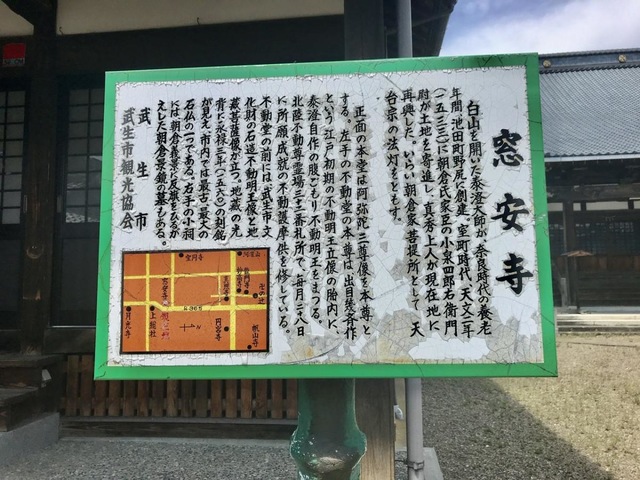 窓安寺
白山を開いた泰澄大師が、奈良時代の養老
年間、池田町野尻に創建、室町時代、天文二年
(一五三三)に朝倉氏家臣の小泉四郎右衛門
尉が土地を寄進し、真秀上人が現在地に
再興した。いらい朝倉家菩提所として、天
台宗の法灯をともす。
正面の本堂は阿弥陀三尊像を本尊と
する。左手の不動堂の本尊は、出目徳若作
という江戸初期の不動明王立像の胎内に、
泰澄自作の腹ごもり不動明王をまつる。
北陸不動尊霊場三十二番札所で、毎月二八日
に所願成就の不動護摩供を修している。
不動堂の前には、武生市文
化財の石造不動明王像と地
蔵菩薩像が立つ。地蔵の光
背に永禄三年(一五六〇)の刻銘
が見え、市内では最古、最大の
石仏の一つである。右手の小祠
には朝倉義景に反旗をひるが
えした朝倉景鏡の墓もある。
武生市
武生市観光協会
宝円寺
月光寺
上総社
円宮寺
帆山寺